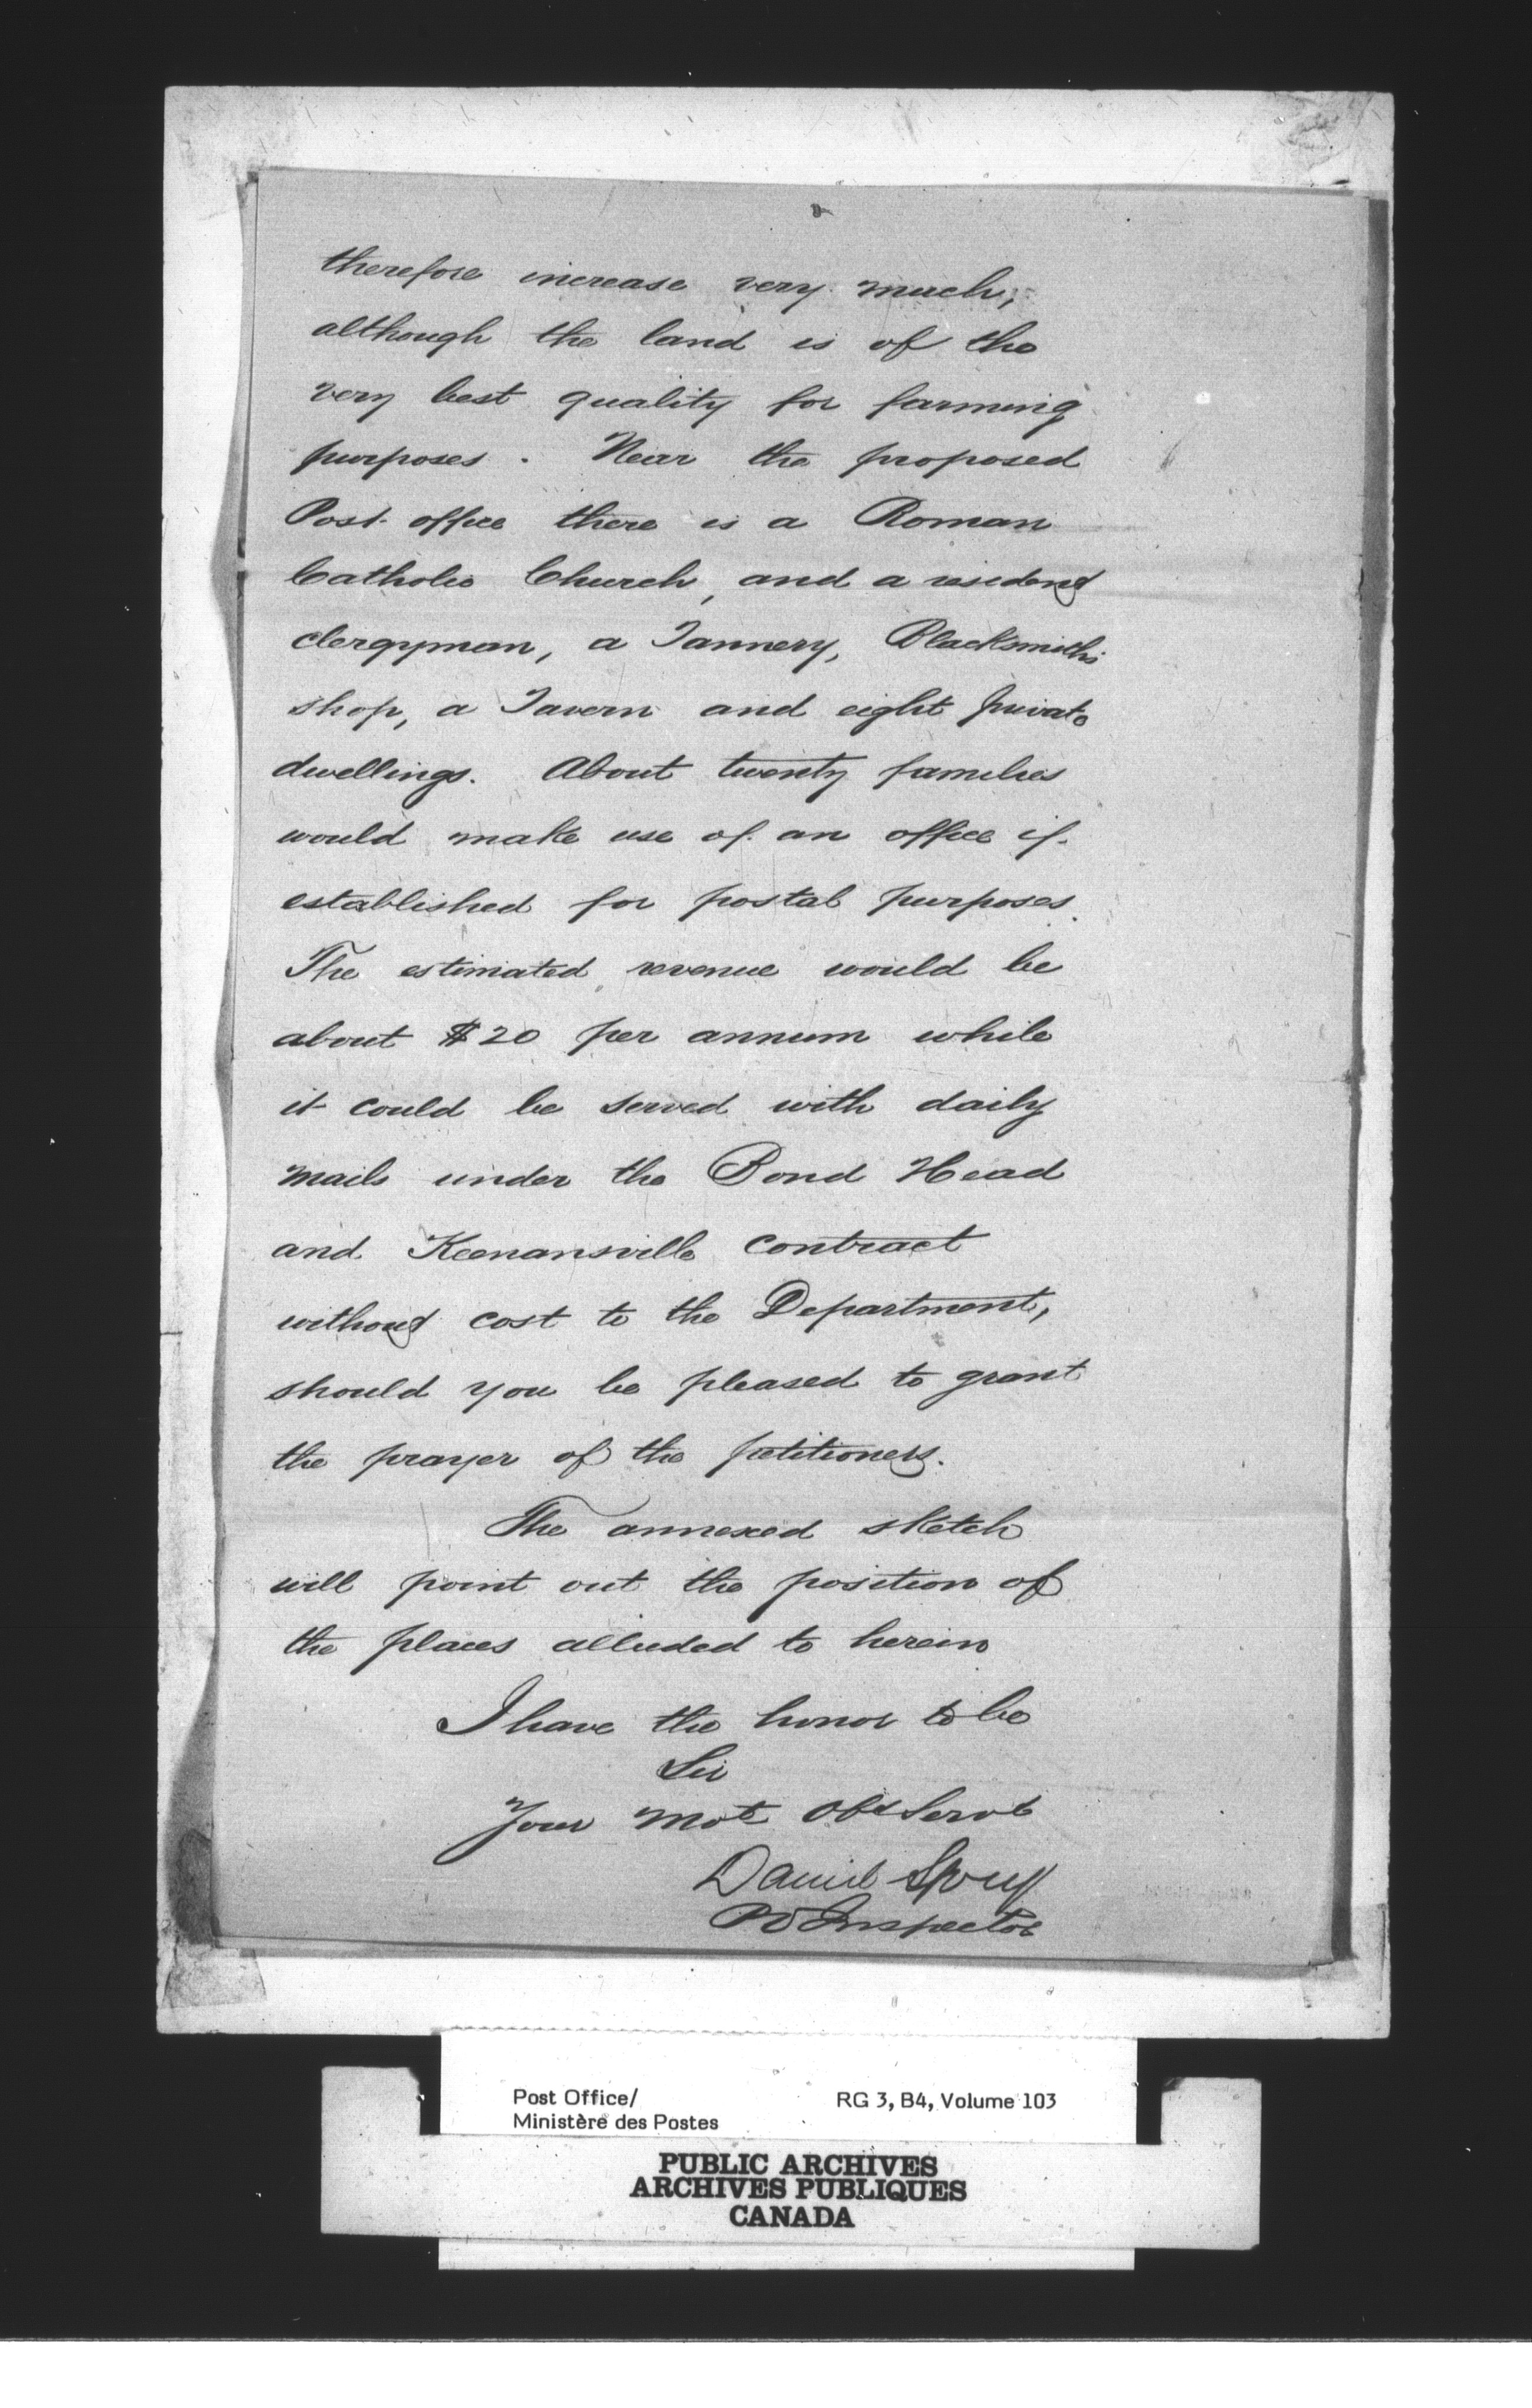 therefore increase very much,
although the land is of the
very best quality for farming
purposes. Near the proposed
Post office there is a Roman
Catholic Church, and a resident
clergyman, a Tannery, Blacksmiths
shop, a Tavern and eight private
dwellings. About twenty families
would make use of an office if
established for postal purposes.
The estimated revenue would be
about $20 per annum while
it could be served with daily
mails under the Bond Head
and Keenansville contract
without cost to the Department,
should you be pleased to grant
the prayer of the petitioners.
The annexed sketch
will point out the position of
the places alluded to herein
I have the honor to be
Sir
Your Mot Obt Servt
Daniel Spry
PO Inspector
Post Office/
Ministère des Postes
RG 3, B4, Volume 103
PUBLIC ARCHIVES
ARCHIVES PUBLIQUES
CANADA